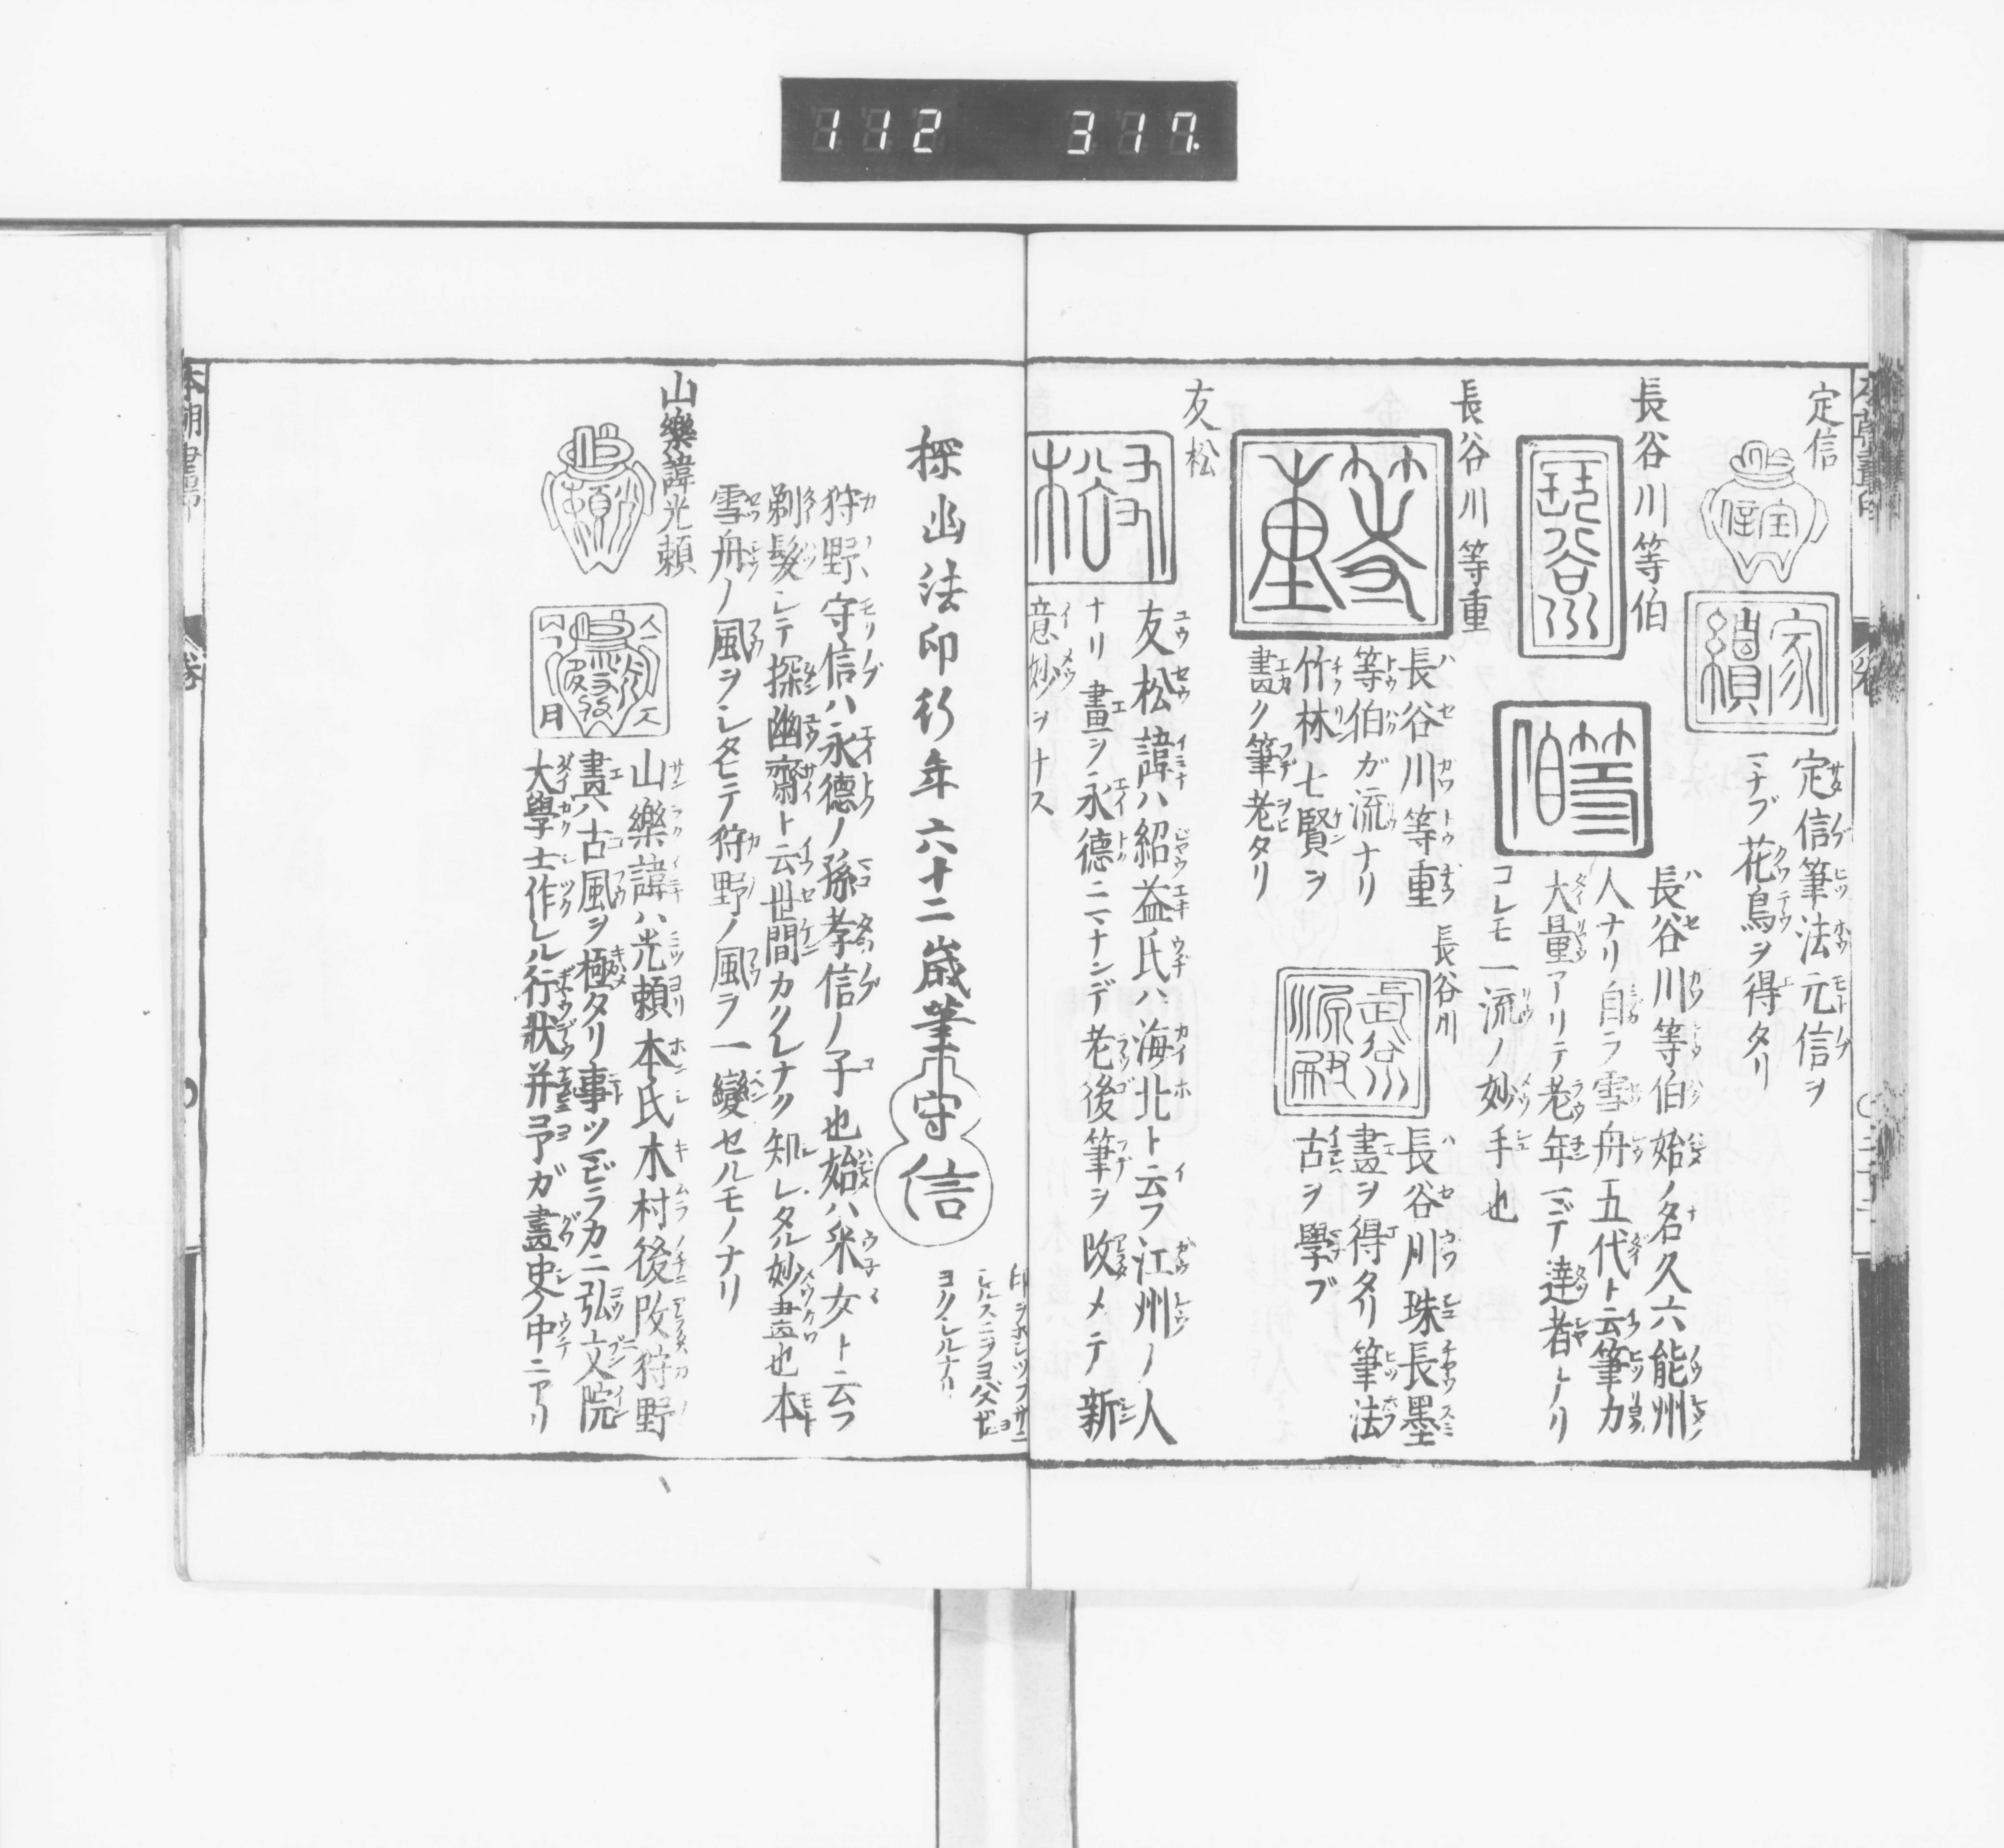 112 317.
定信
定信筆法元信ヲ
マナブ花鳥ヲ得タリ
長谷川等伯
長谷川等伯始ノ名久六能州
人ナリ自ラ雪舟五代ト云筆力
大量アリテ老年マデ達者ナリ
コレモ一流ノ妙手也
長谷川等重
等重
長谷川等重
等伯ガ流ナリ
竹林七賢ヲ
畫ク筆老タリ
長谷川
長谷川珠長墨
畫ヲ得タリ筆法
古ヲ學ブ
友松
友松
友松諱ハ紹益氏ハ海北ト云フ江州ノ人
ナリ畫ヲ永德ニマナンデ老後筆ヲ改メテ新
意妙ヲナス
探幽法印行年六十二歳筆
守信
ヨクシルナリ
狩野守信ハ永德ノ孫孝信ノ子也始ハ采女ト云フ
剃髮シテ探幽齋ト云世間カクレナク知レタル妙畫也本
雪舟ノ風ヲシタヒテ狩野ノ風ヲ一變セルモノナリ
山樂諱光頼
山樂諱ハ光頼本氏木村後改狩野
畫ハ古風ヲ極タリ事ツマビラカニ弘文院
大學士作レル行狀并ヨ予ガ畫史ノ中ニアリ